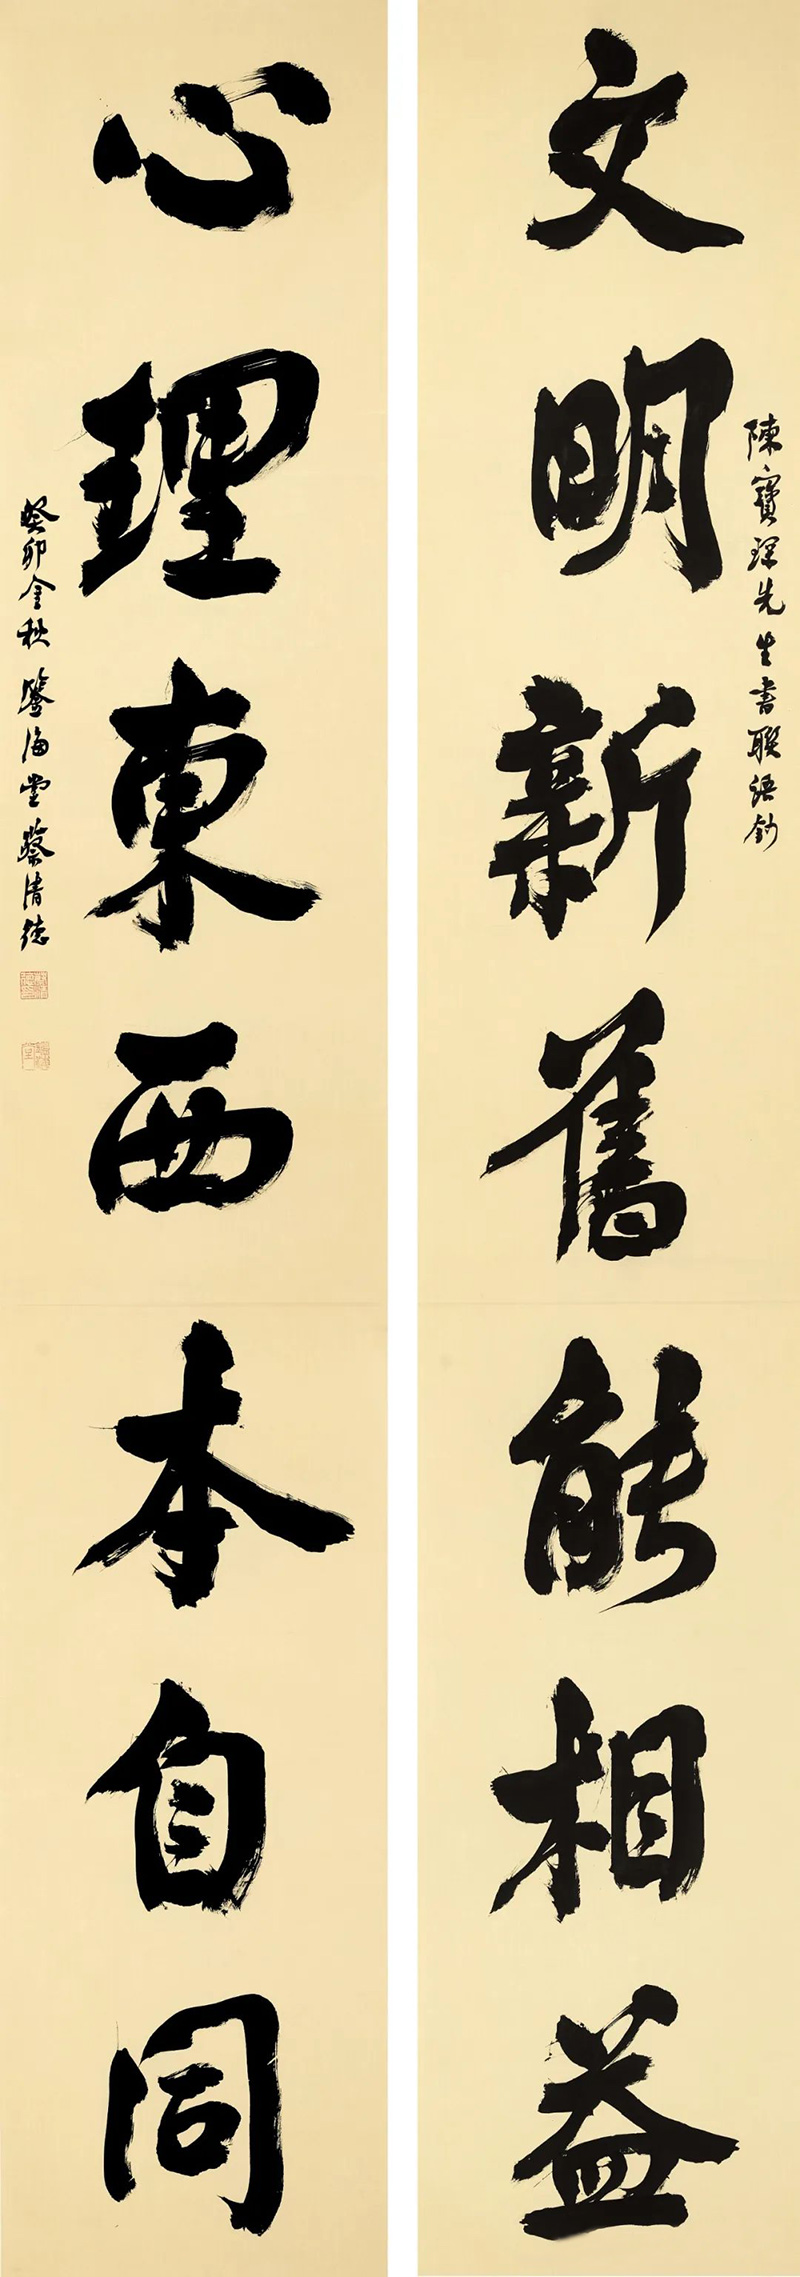 陳寶琛先生書聯語鈔
文明新舊能相益
心理東西本自同
癸卯金秋鑒海堂蔡清德